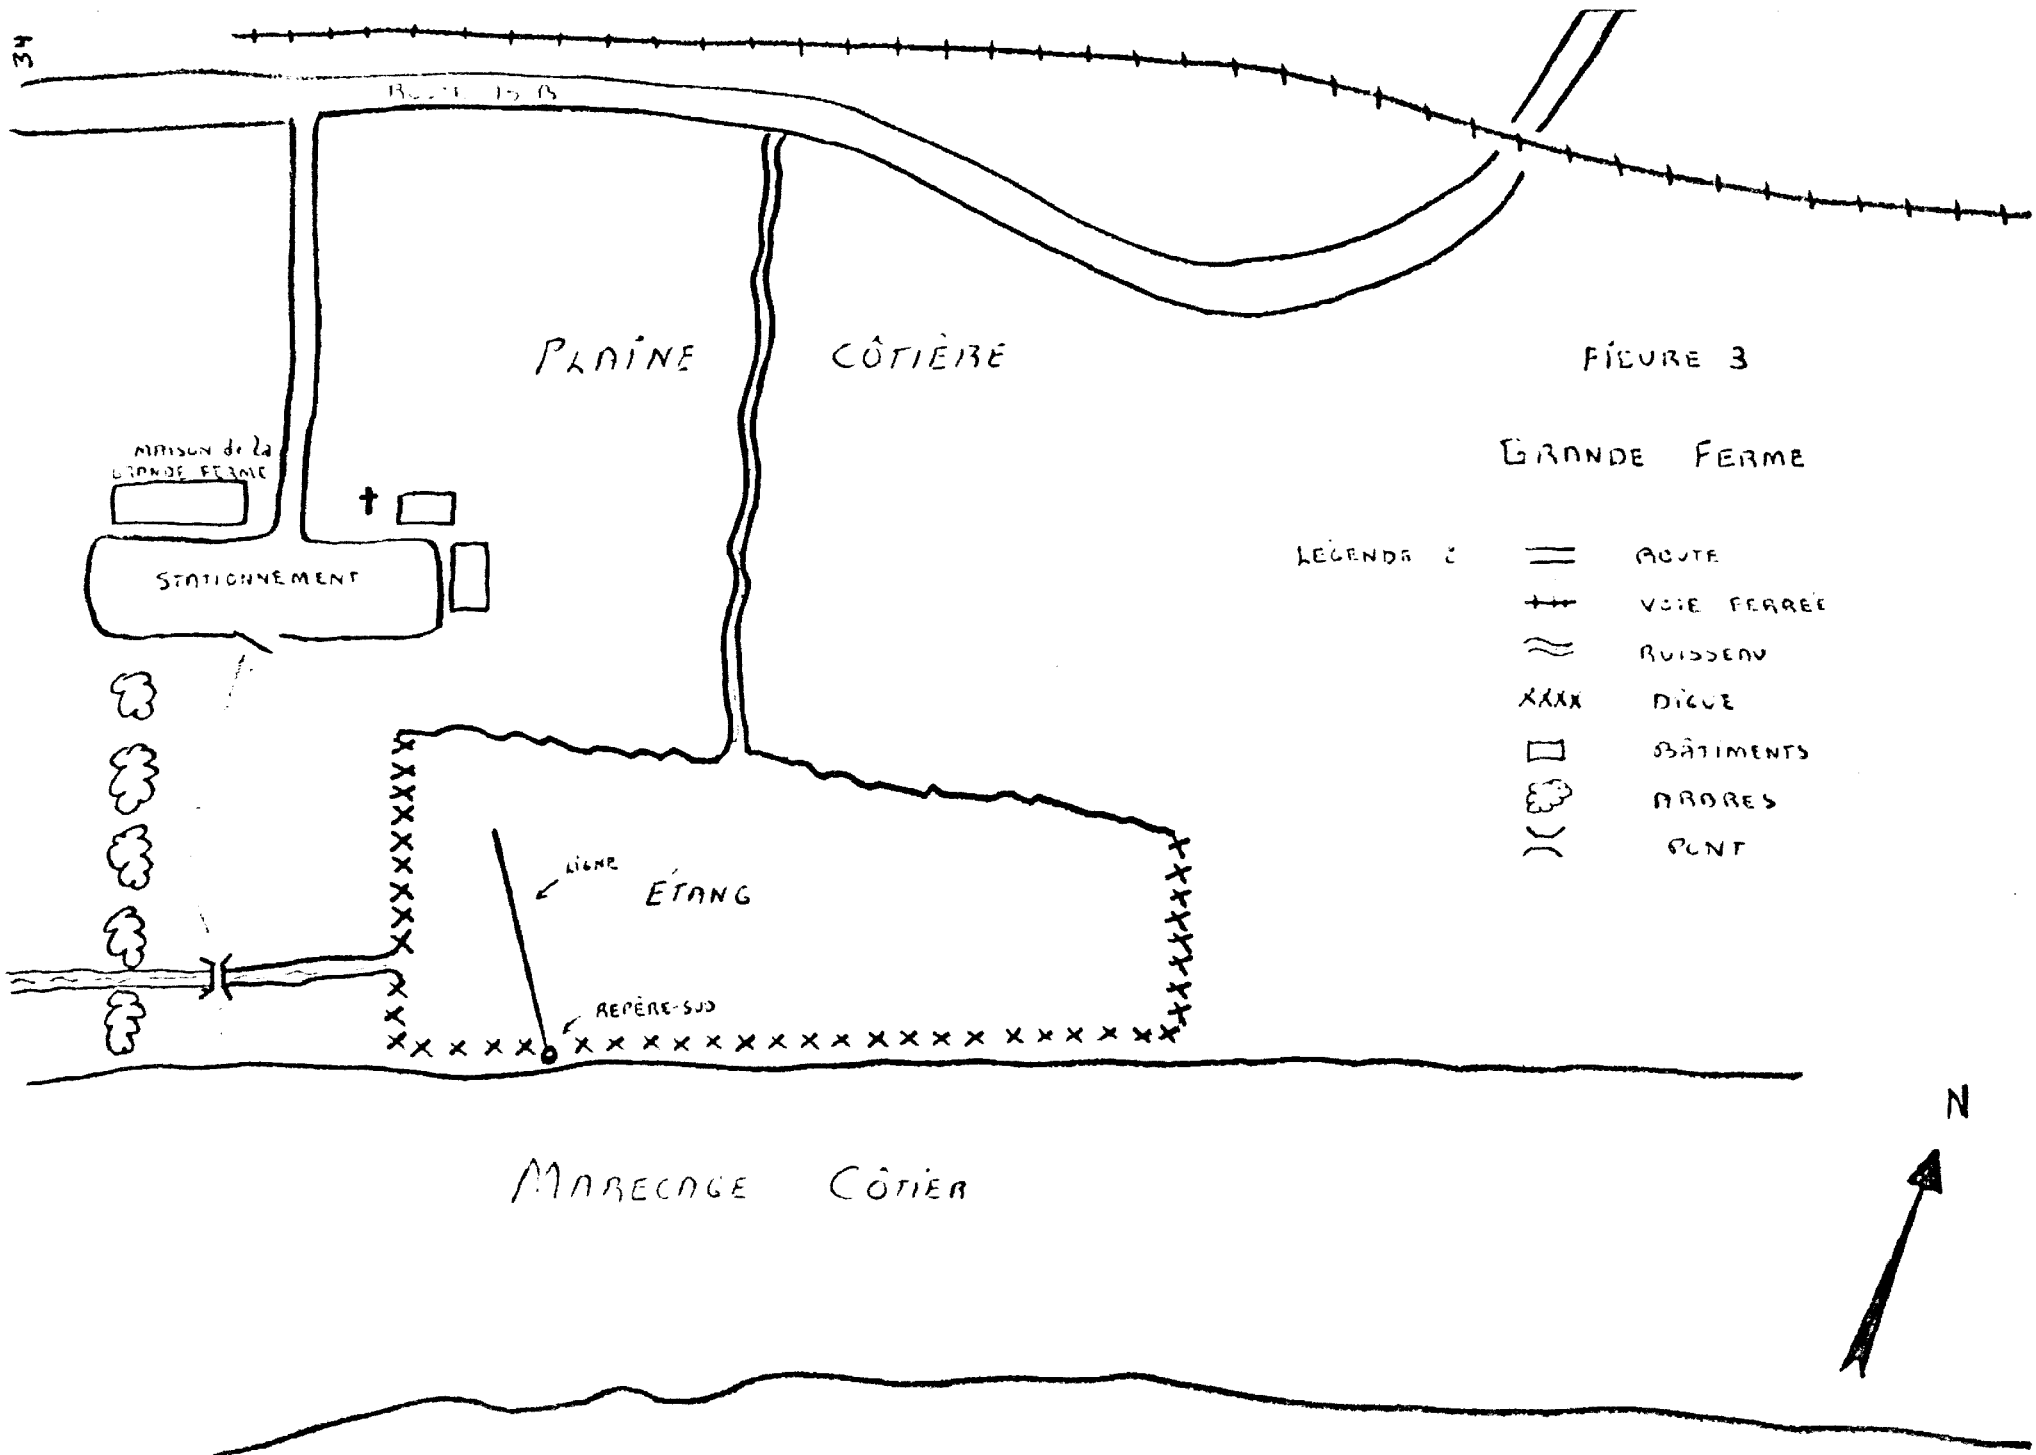 34
ROUTE 15 B
PLAINE CÔTIÈRE
FIGURE 3
GRANDE FERME
MAISON de la
GRANDE FERME
STATIONNEMENT
LÉGENDE :
ROUTE
VOIE FERRÉE
RUISSEAU
DIGUE
BÂTIMENTS
ARBRES
PONT
LIGNE
ÉTANG
REPÈRE-SUD
N
MARECAGE CÔTIER